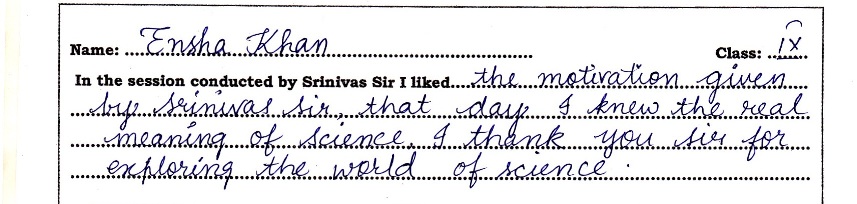 Name: ....Ensha Khan.... Class: ..IX..
In the session conducted by Srinivas Sir I liked....the motivation given
by Srinivas sir, that day I knew the real
meaning of science. I thank you sir for
exploring the world of science.